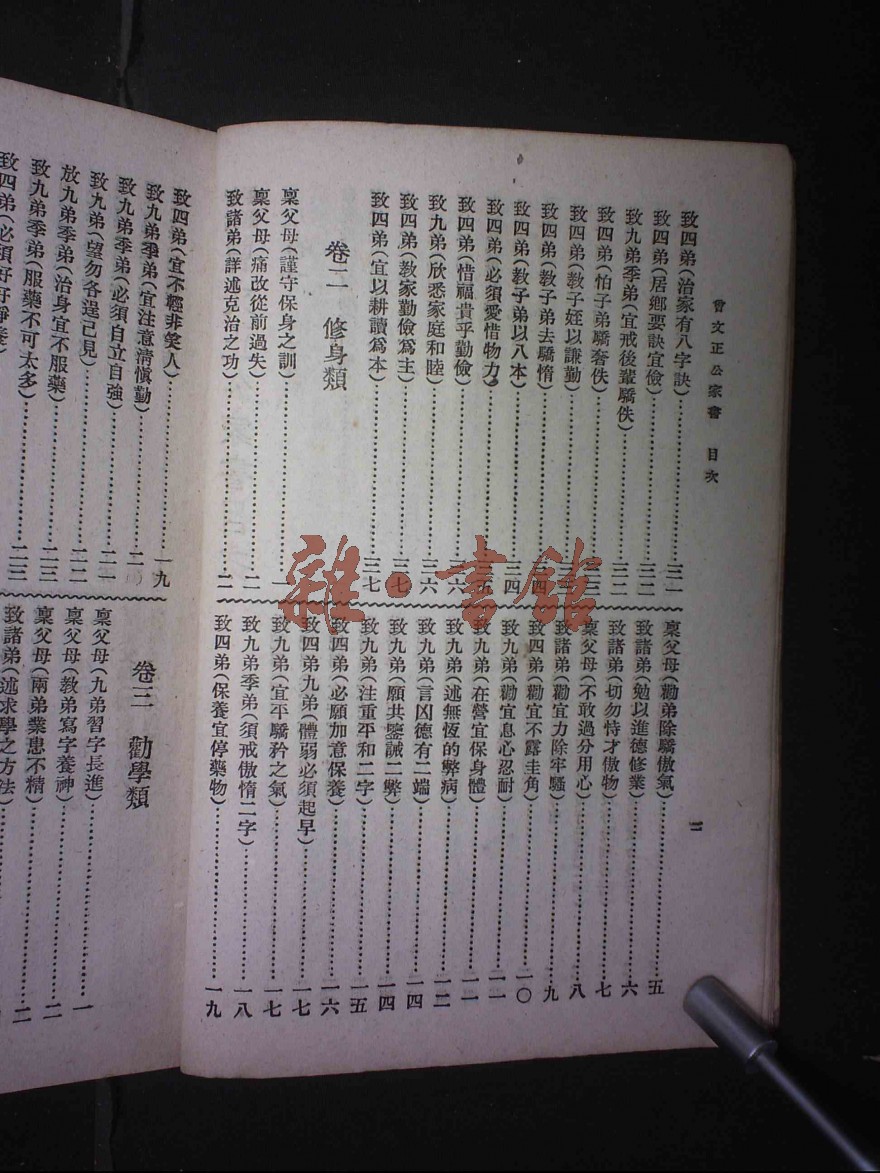 曾文正公家書　目次
致四弟(治家有八字訣)……三一
致四弟(居鄉要訣宜儉)……三二
致九弟季弟(宜戒後輩驕佚)……三二
致四弟(怕子弟驕奢佚)
致四弟(教子姪以謙勤)
致四弟(教子弟去驕惰)
致四弟(教子弟以八本)……三四
致四弟(必須愛惜物力)
致四弟(惜福貴乎勤儉)
致九弟(欣悉家庭和睦)……三六
致四弟(教家勤儉為主)……三七
致四弟(宜以耕讀為本)……三七
卷二　修身類
稟父母(謹守保身之訓)……一
稟父母(痛改從前過失)……二
致諸弟(詳述克治之功)……二
稟父母(勸弟除驕傲氣)……五
致諸弟(勉以進德修業)……六
致諸弟(切勿恃才傲物)……七
稟父母(不敢過分用心)……八
致諸弟(勸宜力除牢騷)……九
致四弟(勸宜不露圭角)……一〇
致九弟(勸宜息心忍耐)……一一
致九弟(在營宜保身體)……一一
致九弟(述無恆的弊病)……一二
致九弟(言凶德有二端)……一四
致九弟(願共鑒誡二弊)……一四
致九弟(注重平和二字)……一五
致四弟(必願加意保養)……一六
致四弟九弟(體弱必須起早)……一七
致九弟(宜平驕矜之氣)……一七
致九弟季弟(須戒傲惰二字)……一八
致四弟(保養宜停藥物)……一九
二
致四弟(宜不輕非笑人)……一九
致九弟季弟(宜注意清慎勤)
致九弟季弟(必須自立自強)……二一
致九弟(望勿各逞己見)……二二
放九弟季弟(治身宜不服藥)……二三
致九弟季弟(服藥不可太多)……二三
致四弟(必須好好靜養)
卷三　勸學類
稟父母(九弟習字長進)……一
稟父母(教弟寫字養神)……二
稟父母(兩弟業患不精)……二
致諸弟(述求學之方法)
雜·書館